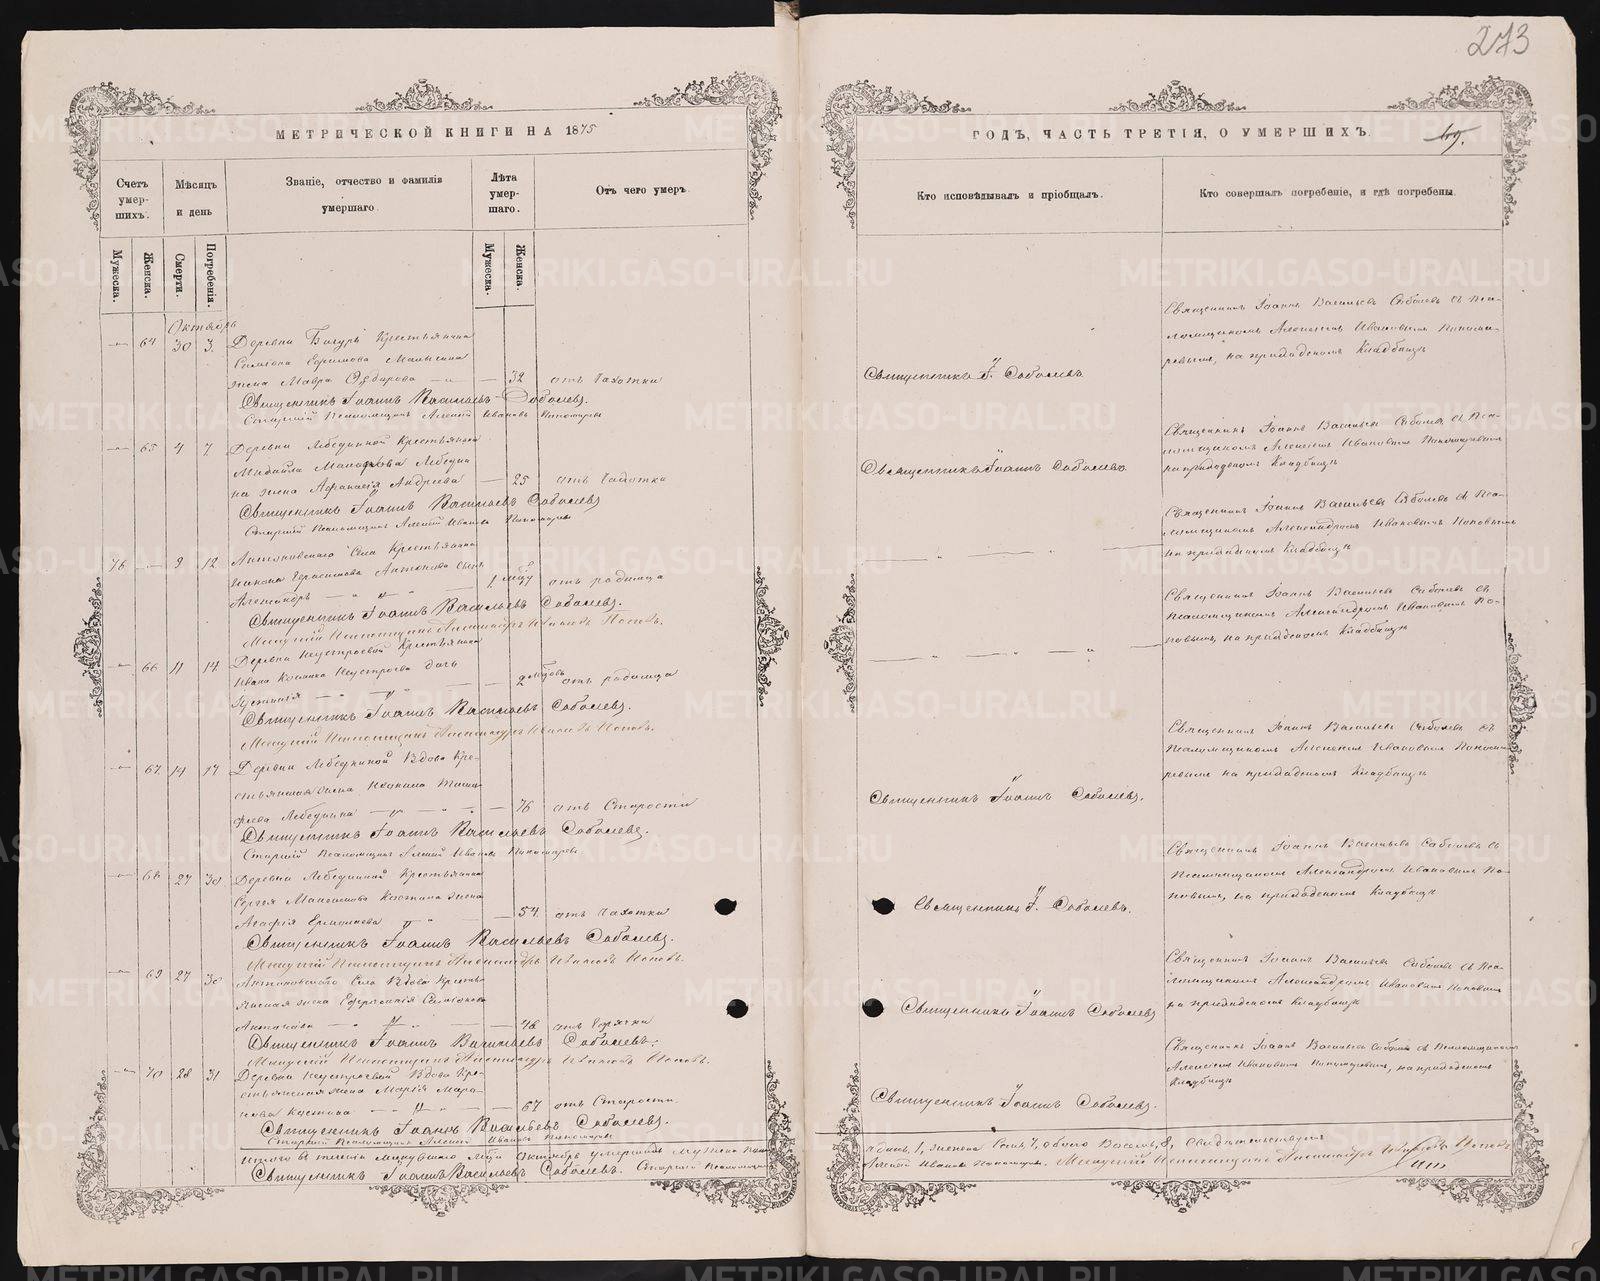 273
МЕТРИЧЕСКОЙ КНИГИ НА 1875
Счетъ умер-шихъ.
Мѣсяцъ и день
Званіе, отчество и фамилія умершаго
Лѣта умер-шаго.
Отъ чего умеръ
Мужеска.
Женска.
Смерти.
Погребенія.
Мужеска.
Женска.
Октябрь
64 30 3. Деревни Крестьянина
Ефимова
жена Мавра 32 отъ Чахотки
Священникъ Іоаннъ Васильевъ Соболевъ.
Старшій Псаломщикъ Алексій Ивановъ Пономаревъ
65 4 7 Деревни Лебедкиной Крестьянина
Михаила Лебедки
на жена Афанасія Андреева 25 отъ Чахотки
Священникъ Іоаннъ Васильевъ Соболевъ
Старшій Псаломщикъ Алексій Ивановъ Пономаревъ
76 9 12 Антоновскаго Села Крестьянина
Герасимова Антонова сынъ
Александръ 1 мѣс отъ родимца
Священникъ Іоаннъ Васильевъ Соболевъ.
Младшій Псаломщикъ Александръ Ивановъ Поповъ.
66 11 14 Деревни Неустроевой Крестьянина
Ивана Неустроева дочь
Іустинія 2 мѣсяцовъ отъ родимца
Священникъ Іоаннъ Васильевъ Соболевъ.
Младшій Псаломщикъ Александръ Ивановъ Поповъ.
67 14 17 Деревни Лебедкиной Вдова Кре-
стьянская жена
Лебедкина 76 отъ Старости
Священникъ Іоаннъ Васильевъ Соболевъ.
Старшій Псаломщикъ Алексій Ивановъ Пономаревъ
68 27 30 Деревни Лебедкиной Крестьянина
Сергея Костина жена
Агафія 54. отъ Чахотки
Священникъ Іоаннъ Васильевъ Соболевъ.
Младшій Псаломщикъ Александръ Ивановъ Поповъ.
69 27 30 Антоновскаго Села Вдова Кресть-
янская жена
Антонова 48 отъ Горячки
Священникъ Іоаннъ Васильевъ Соболевъ.
Младшій Псаломщикъ Александръ Ивановъ Поповъ.
70 28 31 Деревни Неустроевой Вдова Кре-
стьянская жена Марія
Костина 67 отъ Старости.
Священникъ Іоаннъ Васильевъ Соболевъ.
Старшій Псаломщикъ Алексій Ивановъ Пономаревъ
Итого въ теченіи минувшаго мѣсяца Октябрь умершихъ мужеска пола
Священникъ Іоаннъ Васильевъ Соболевъ. Старшій Псаломщикъ
ГОДЪ, ЧАСТЬ ТРЕТІЯ, О УМЕРШИХЪ.
69.
Кто исповѣдывалъ и пріобщалъ.
Кто совершалъ погребеніе, и гдѣ погребены
Священникъ Іоаннъ Васильевъ Соболевъ съ Пса-
ломщикомъ Алексіемъ Ивановымъ Понома-
ревымъ, на приходскомъ Кладбищѣ
Священникъ І. Соболевъ
Священникъ Іоаннъ Васильевъ Соболевъ съ Пса-
ломщикомъ Алексіемъ Ивановымъ Пономаревымъ
на приходскомъ Кладбищѣ
Священникъ Іоаннъ Соболевъ
Священникъ Іоаннъ Васильевъ Соболевъ съ Пса-
ломщикомъ Александромъ Ивановымъ Поповымъ
на приходскомъ Кладбищѣ
Священникъ Іоаннъ Васильевъ Соболевъ съ
Псаломщикомъ Александромъ Ивановымъ По-
повымъ, на приходскомъ Кладбищѣ
Священникъ Іоаннъ Васильевъ Соболевъ съ
Псаломщикомъ Алексіемъ Ивановымъ Понома-
ревымъ на приходскомъ Кладбищѣ
Священникъ Іоаннъ Соболевъ.
Священникъ Іоаннъ Васильевъ Соболевъ съ
Псаломщикомъ Александромъ Ивановымъ По-
повымъ, на приходскомъ Кладбищѣ
Священникъ І. Соболевъ.
Священникъ Іоаннъ Васильевъ Соболевъ съ Пса-
ломщикомъ Александромъ Ивановымъ Поповымъ
на приходскомъ Кладбищѣ
Священникъ Іоаннъ Соболевъ
Священникъ Іоаннъ Васильевъ Соболевъ съ Псаломщикомъ
Алексіемъ Ивановымъ Пономаревымъ, на приходскомъ
Кладбищѣ
Священникъ Іоаннъ Соболевъ.
одинъ 1, женска Семь 7, обоего Восемь, 8, Свидѣтельствуемъ
Алексій Ивановъ Пономаревъ. Младшій Псаломщикъ Александръ Ивановъ Поповъ
METRIKI.GASO-URAL.RU